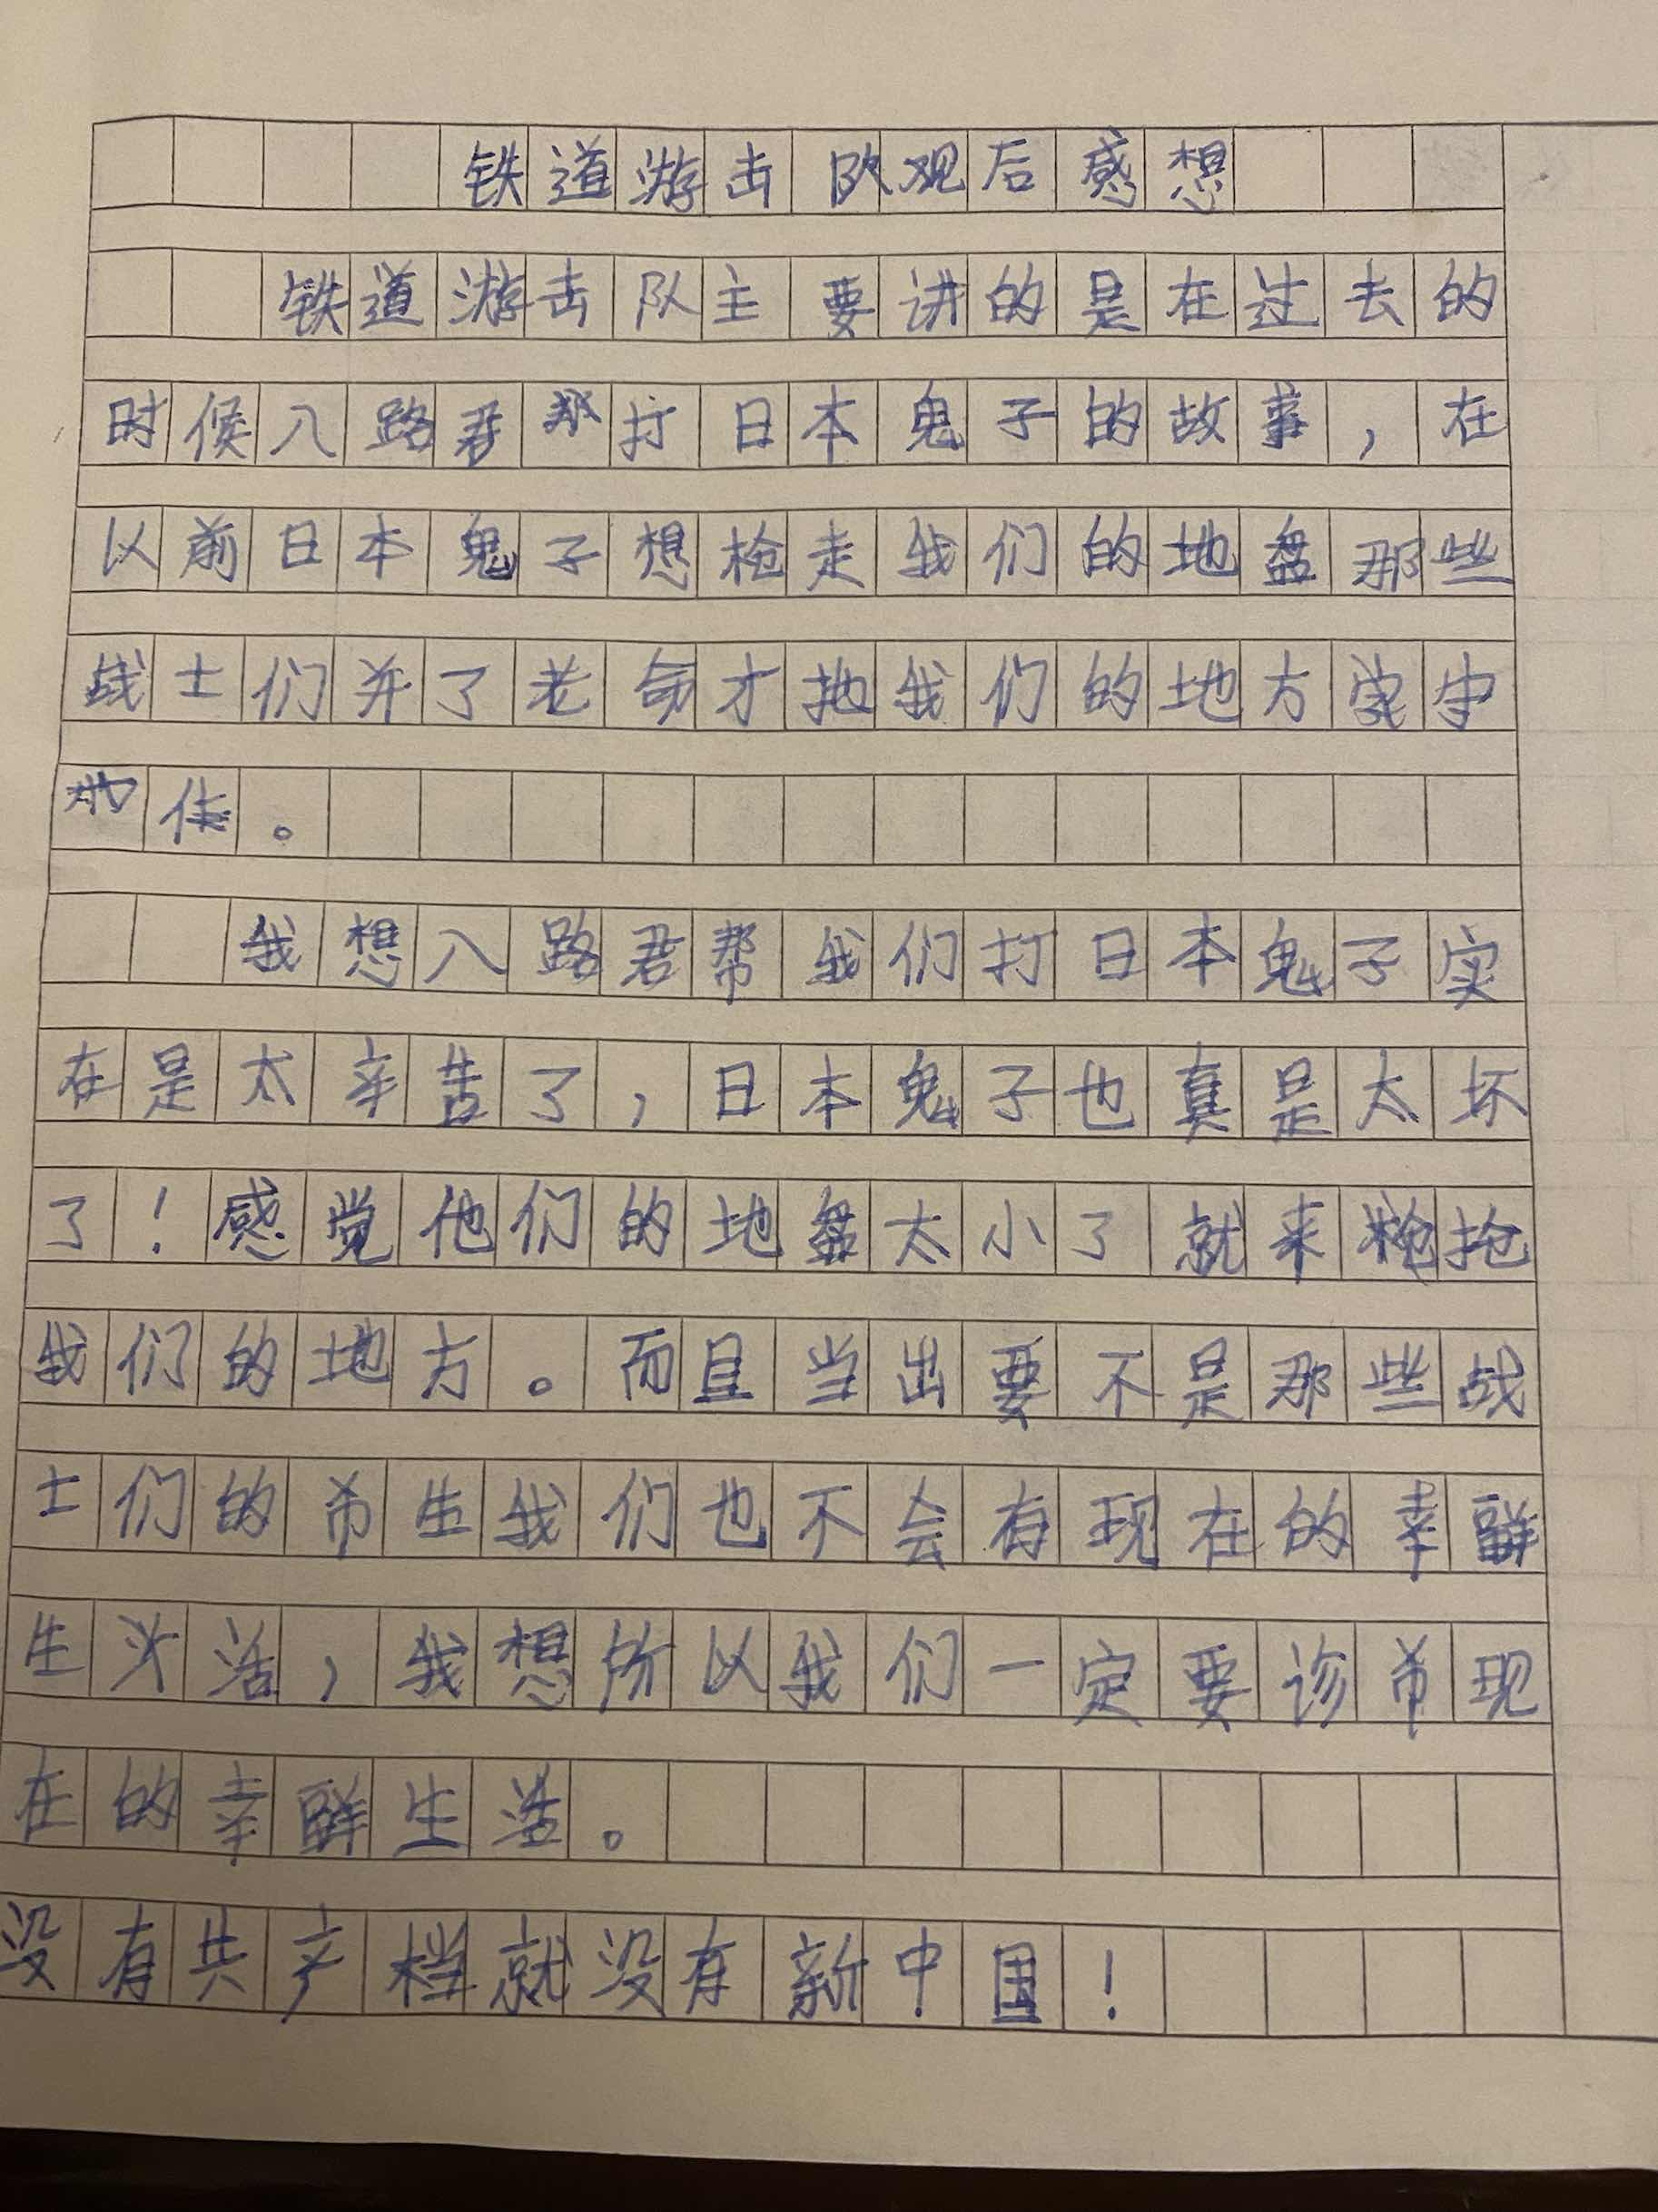 铁道游击队观后感想
铁道游击队主要讲的是在过去的
时候八路君打日本鬼子的故事，在
以前日本鬼子想枪走我们的地盘那些
战士们并了老命才把我们的地方守
住。
我想八路君帮我们打日本鬼子实
在是太辛苦了，日本鬼子也真是太坏
了！感觉他们的地盘太小了就来抢
我们的地方。而且当出要不是那些战
士们的希生我们也不会有现在的幸
生活，我想所以我们一定要诊希现
在的幸生活。
没有共产档就没有新中国！